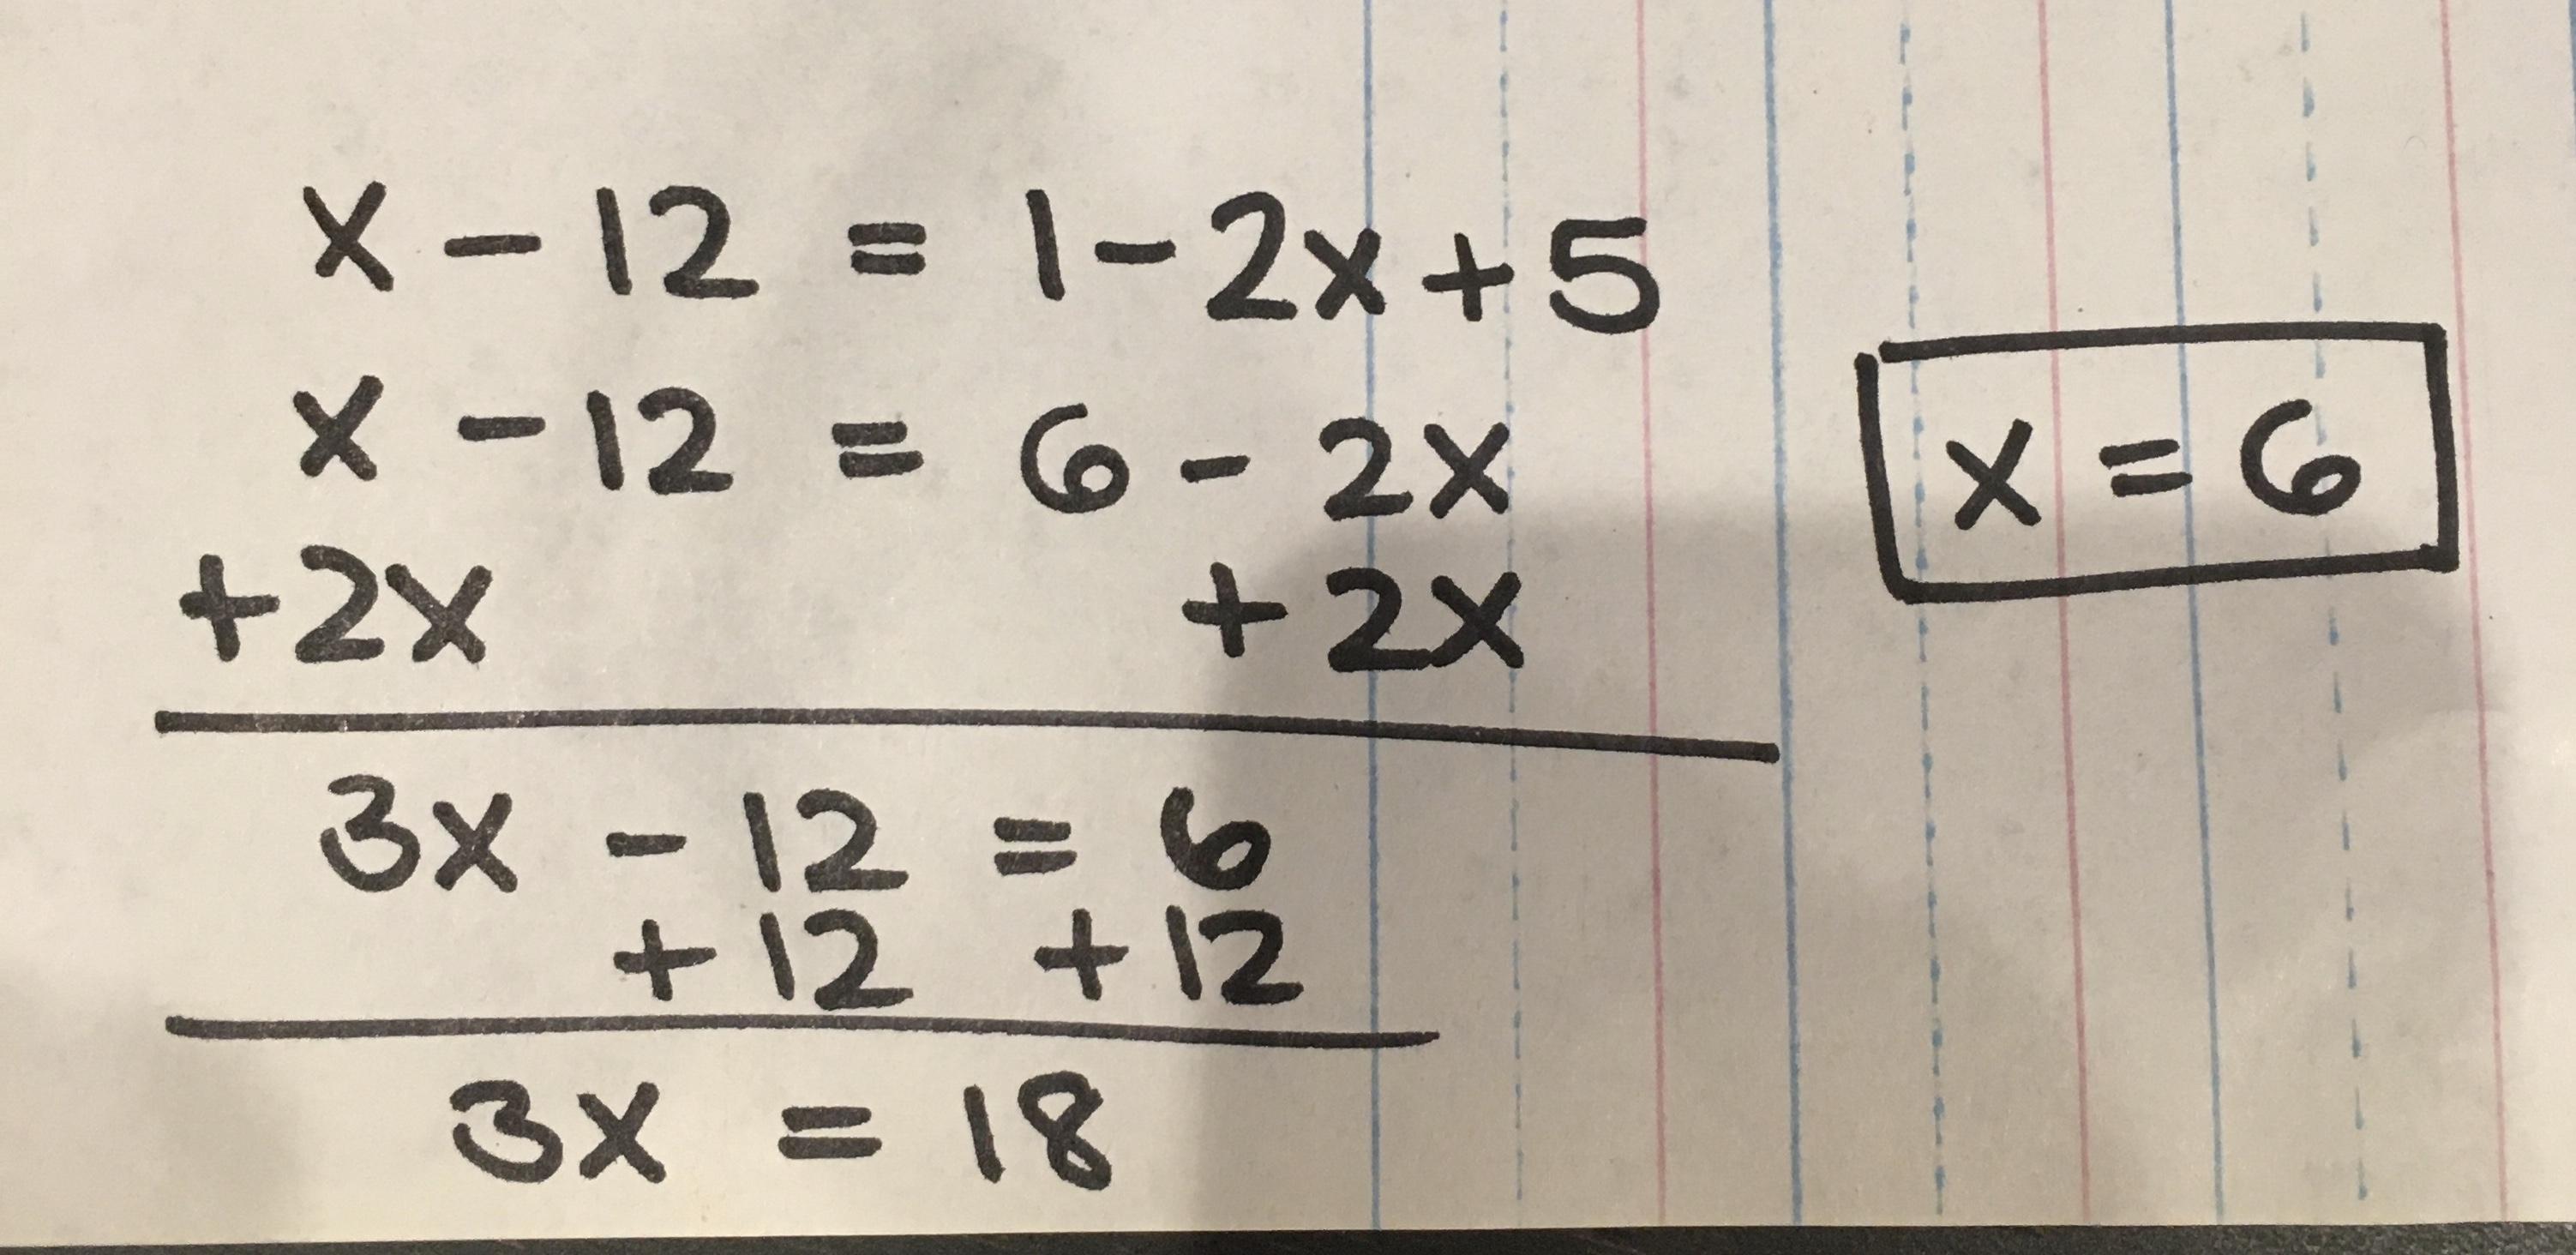 x - 12 = 1 - 2x + 5
x - 12 = 6 - 2x
+ 2x + 2x
3x - 12 = 6
+ 12 + 12
3x = 18
x = 6